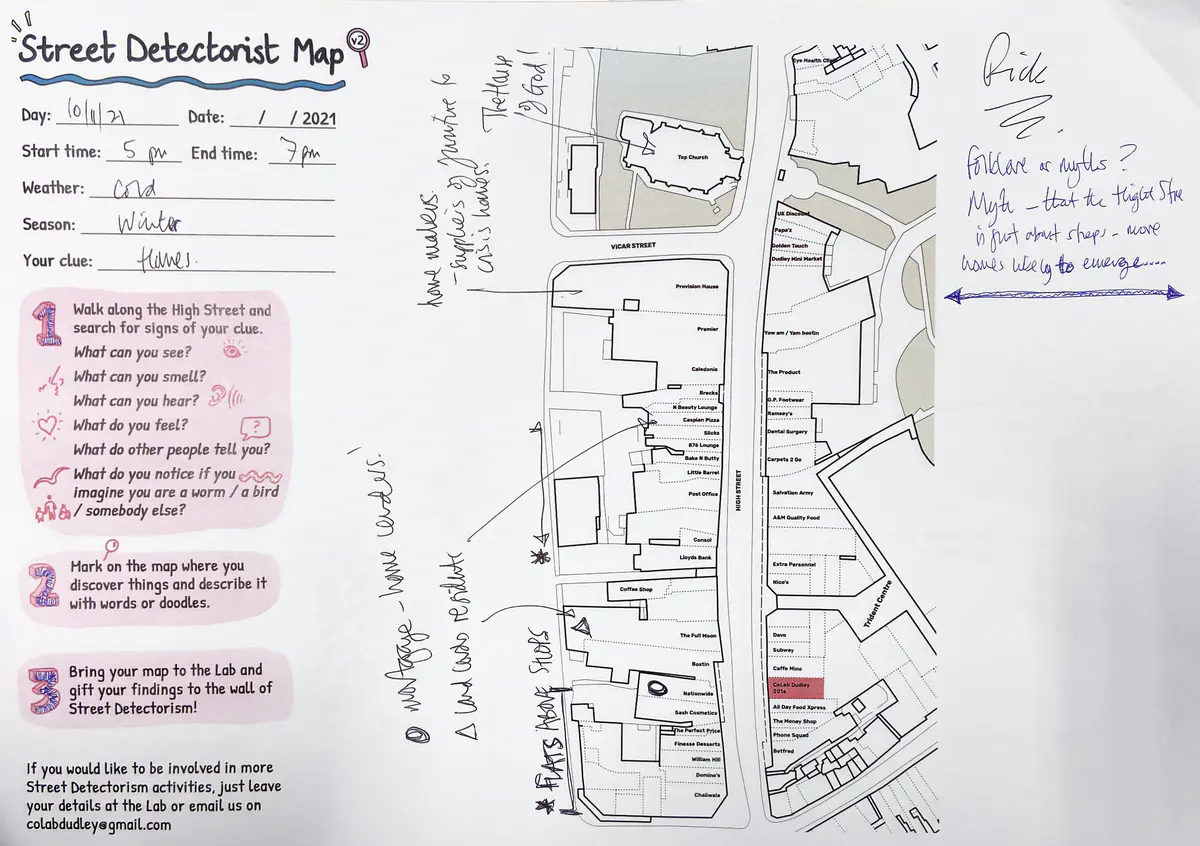 Street Detectorist Map
v2
Day: 10/11/21 Date: / / 2021
Start time: 5 pm End time: 7pm
Weather: Cold
Season: Winter
Your clue: Homes.
1
Walk along the High Street and
search for signs of your clue.
What can you see?
What can you smell?
What can you hear?
What do you feel?
?
What do other people tell you?
What do you notice if you
imagine you are a worm / a bird
/ somebody else?
2
Mark on the map where you
discover things and describe it
with words or doodles.
3
Bring your map to the Lab and
gift your findings to the wall of
Street Detectorism!
If you would like to be involved in more
Street Detectorism activities, just leave
your details at the Lab or email us on
colabdudley@gmail.com
home makers.
- suppliers of furniture to
crisis homes.
The House
of God!
mortgage - home lenders.
Land Lords residents
FLATS ABOVE SHOPS
Top Church
VICAR STREET
Provision House
Premier
Caledonia
Brocks
N Beauty Lounge
Caspian Pizza
Slicks
876 Lounge
Bake N Butty
Little Barrel
Post Office
Consol
Lloyds Bank
Coffee Shop
The Full Moon
Bostin
Nationwide
Sash Cosmetics
The Perfect Price
Finesse Desserts
William Hill
Domino's
Chaiiwala
HIGH STREET
Eye Health Clinic
UK Discount
Papa's
Golden Touch
Dudley Mini Market
Yow am / Yam bostin
The Product
G.P. Footwear
Ramsey's
Dental Surgery
Carpets 2 Go
Salvation Army
A&M Quality Food
Extra Personnel
Nice's
Trident Centre
Davo
Subway
Caffe Mino
CoLab Dudley
201a
All Day Food Xpress
The Money Shop
Phone Squad
Betfred
Rick
Folklore or myths?
Myth - that the Hight Stre
is just about shops - more
homes likely to emerge....